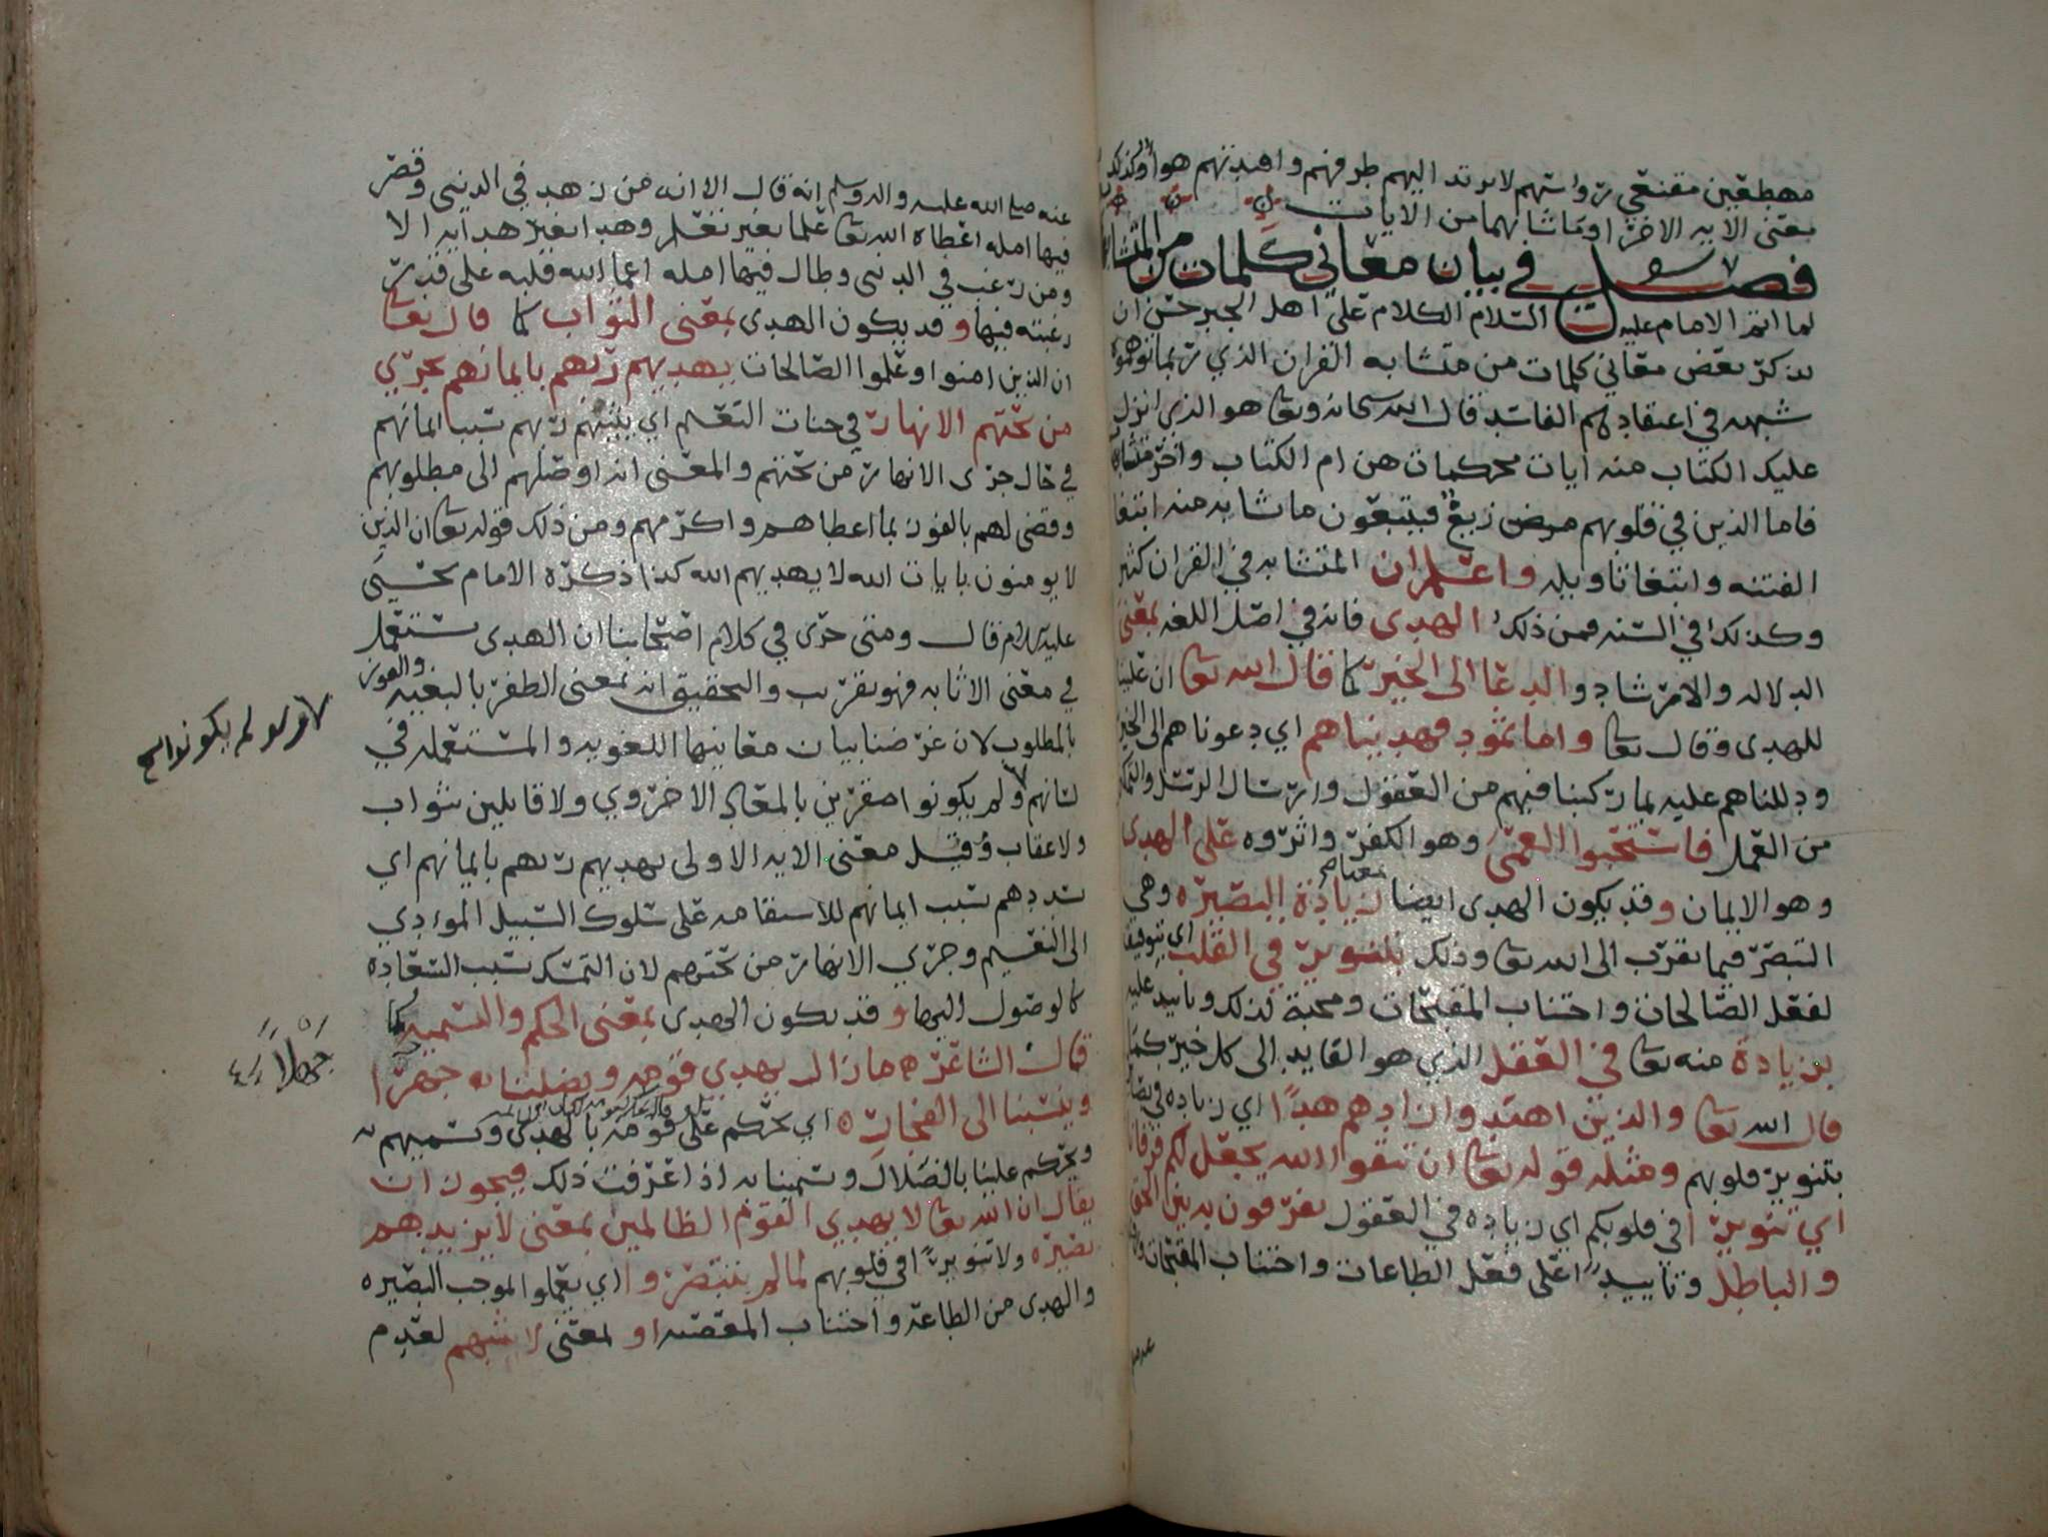 مهطعين مقنعي رواسهم لا يرتد اليهم طرفهم وافئدتهم هوا وكذلك
معنى الايه الاخرا وما شابهها من الايات
فصل في بيان معاني كلمات من المتشابه
لما اتم الامام عليه السلام الكلام على اهل الجبر حسن ان
يذكر بعض معاني كلمات من متشابه القران الذي ربما توهموه
شبهه في اعتقادهم الفاسد قال الله سبحانه وتعا هو الذي انزل
عليك الكتاب منه ايات محكمات هن ام الكتاب واخر متشابهات
فاما الذين في قلوبهم مرض زيغ فيتبعون ما تشابه منه ابتغا
الفتنه وابتغا تاويله واعلم ان المتشابه في القران كثير
وكذلك في السنه فمن ذلك الهدى فانه في اصل اللغه بمعنى
الدلاله والارشاد والدعا الى الخير كما قال الله تعا ان علينا
للهدى وقال تعا واما ثمود فهديناهم اي دعوناهم الى الخير
ودللناهم عليه بما ركبنا فيهم من العقول وارسال الرسل والتمكين
من العمل فاستحبوا العمى وهو الكفر واثروه على الهدى
وهو الايمان وقد يكون الهدى ايضا معناه زيادة البصيره وهي
التبصر فيما يقرب الى الله تعا وذلك بتنوير في القلب اي بتوفيق
لفعل الصالحات واجتناب المقبحات ومحبة لذلك وتاييد عليه
بزيادة منه تعا في العقل الذي هو القايد الى كل خير كما
قال الله تعا والذين اهتدوا زادهم هدًا اي زياده في
بتنوير قلوبهم ومثله قوله تعا ان تتقوا الله يجعل لكم فرقانا
اي تنويرا في قلوبكم اي زياده في العقول تفرقون به بين الحق
والباطل وتاييدًا على فعل الطاعات واجتناب المقبحات
عنه صلى الله عليه واله وسلم انه قال الا انه من زهد في الدنيى وقصر
فيها امله اعطاه الله تعا علما بغير تعلم وهدا بغير هدايه الا
ومن رغب في الدنيى وطال فيها امله اعما الله قلبه على قدر
رغبته فيها وقد يكون الهدى بمعنى الثواب كما قال تعا
ان الذين امنوا وعملوا الصالحات يهديهم ربهم بايمانهم تجري
من تحتهم الانهار في جنات النعيم اي يثيبهم ربهم بسبب ايمانهم
في حال جرى الانهار من تحتهم والمعنى انه اوصلهم الى مطلوبهم
وقضى لهم بالفوز بما اعطاهم واكرمهم ومن ذلك قوله تعا ان الذين
لا يومنون بايات الله لا يهديهم الله كذا ذكره الامام يحيى
عليه السلام قال ومتى جرى في كلام اصحابنا ان الهدى يستعمل
في معنى الاثابه فهو تقريب والتحقيق انه بمعنى الظفر بالبغيه والفوز
بالمطلوب لان غرضنا بيان معانيها اللغويه والمستعمله في
لسانهم ولم يكونوا مقرين بالمعاد الاخروي ولا قايلين بثواب
ولا عقاب وقيل معنى الايه الاولى يهديهم ربهم بايمانهم اي
يسددهم بسبب ايمانهم للاستقامه على سلوك السبيل الموادي
الى النعيم وجري الانهار من تحتهم لان التمسك بسبب السعاده
كالوصول اليها وقد يكون الهدى بمعنى الحكم والتسميه كما
قال الشاعر ه ما زال يهدي قومه ويضلنا ه جهرا
وينسبنا الى الفجار ه اي يحكم على قومه بالهدى ويسميهم به
ويحكم علينا بالضلال ويسمينا به اذا عرفت ذلك فيجوز ان
يقال ان الله تعا لا يهدي القوم الظالمين بمعنى لا يزيدهم
بصيره ولا تنويرًا في قلوبهم لما لم يتبصروا اي يعملوا الموجب البصيره
والهدى من الطاعه واجتناب المعصيه او بمعنى لا يثيبهم لعدم
ولم يكونوا
جهلًا